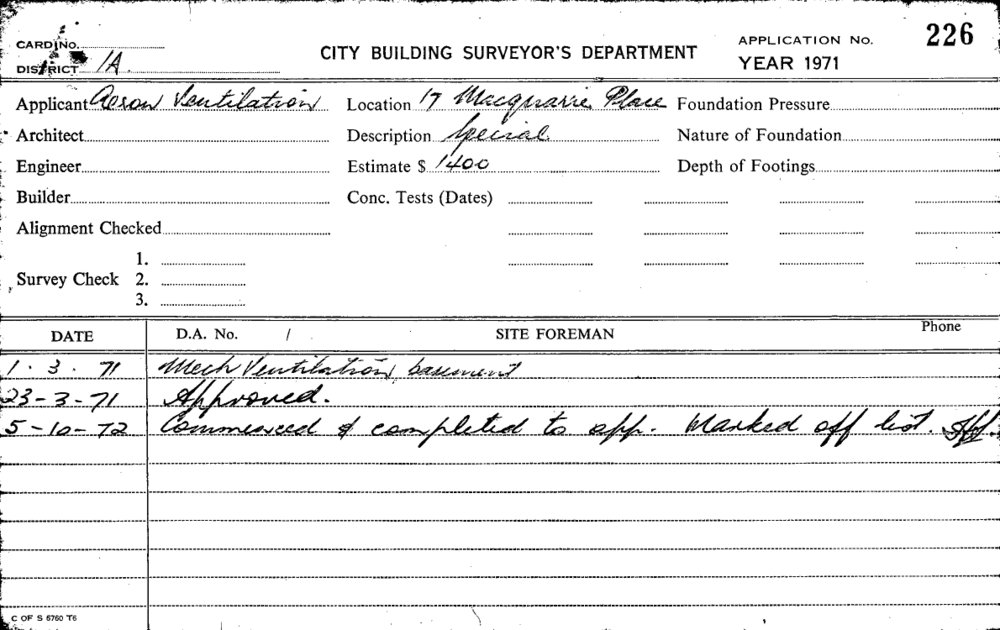 CARD NO.
DISTRICT 1A
CITY BUILDING SURVEYOR'S DEPARTMENT
APPLICATION No. 226
YEAR 1971
Applicant Aeron Ventilation Location 17 Macquarie Place Foundation Pressure
Architect Description Special Nature of Foundation
Engineer Estimate $ 1400 Depth of Footings
Builder Conc. Tests (Dates)
Alignment Checked
1.
Survey Check 2.
3.
DATE D.A. No. / SITE FOREMAN Phone
1. 3. 71 Mech Ventilation, basement
23-3-71 Approved.
5-10-72 Commenced & completed to app. Marked off list.
C OF S 6760 T6